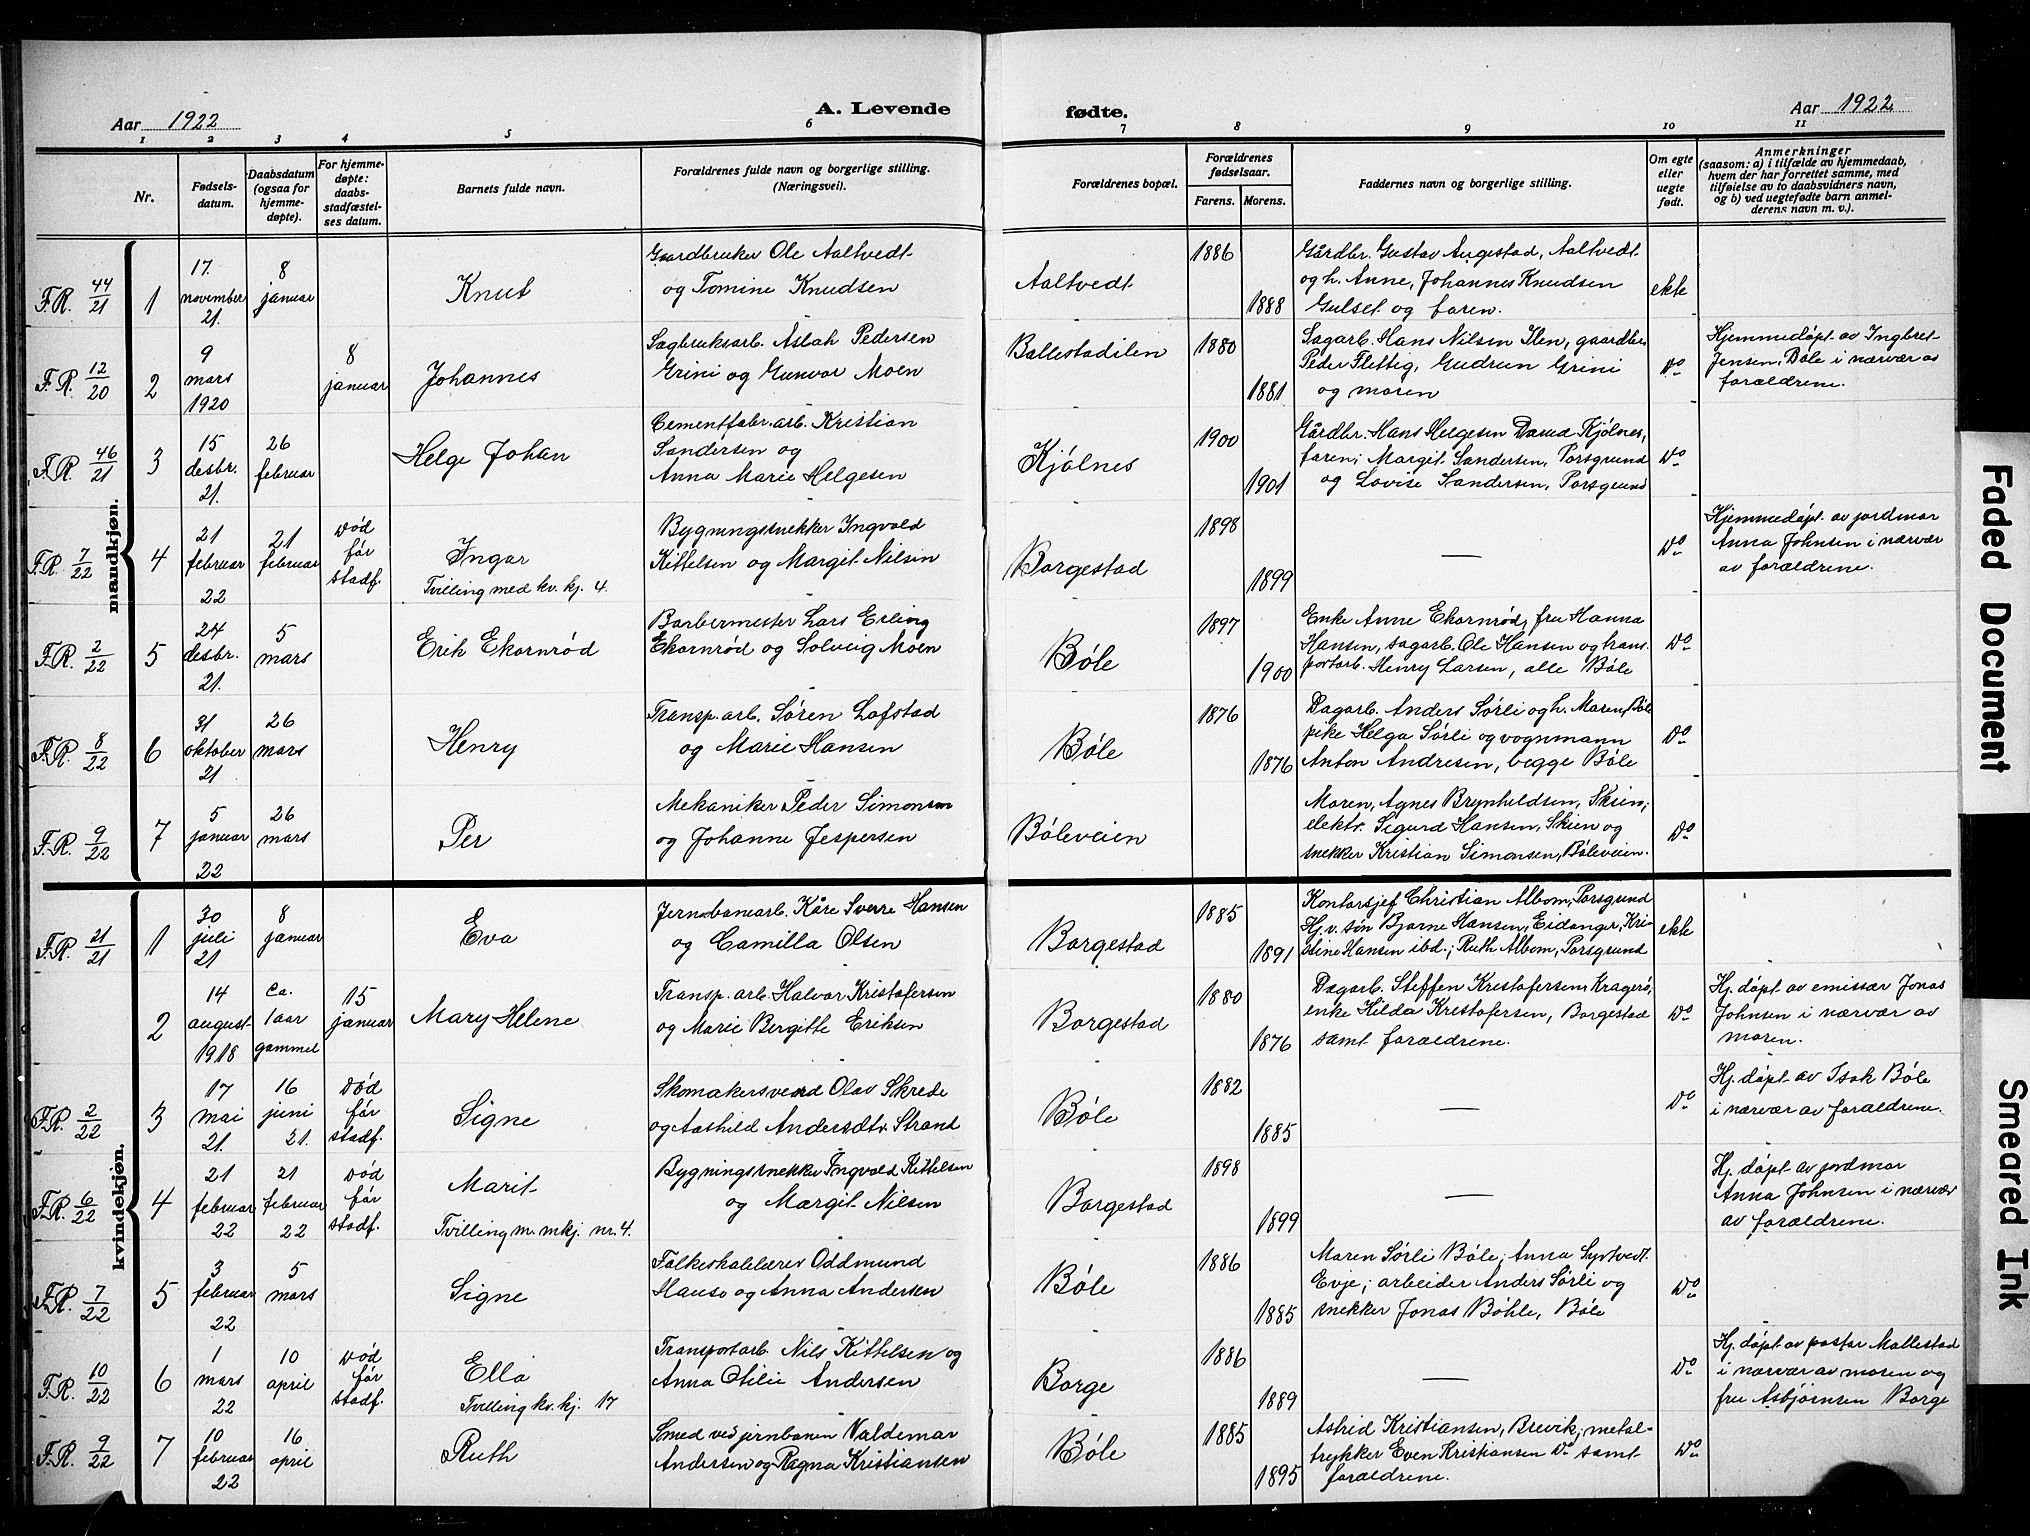 Aar 1922
A. Levende
fødte.
Aar 1922
1 2 3 4 5 6 7 8 9 10 11
Nr.
Fødsels-
datum.
Daabsdatum
(ogsaa for
hjemme-
døpte).
For hjemme-
døpte:
daabs-
stadfæstel-
ses datum.
Barnets fulde navn.
Forældrenes fulde navn og borgerlige stilling.
(Næringsvei).
Forældrenes bopæl.
Forældrenes
fødselsaar.
Farens. Morens.
Faddernes navn og borgerlige stilling.
Om egte
eller
uegte
født.
Anmerkninger
(saasom: a) i tilfælde av hjemmedaab,
hvem der har forrettet samme, med
tilføielse av to daabsvidners navn,
og b) ved uegtefødte barn anmel-
derens navn m. v.).
mandkjøn.
F.R. 44/21
1
17.
november
21.
8
januar
Knut
Gaardbruker Ole Aaltvedt
og Tomine Knudsen
Aaltvedt
1886
1888
Gårdbr. Gustav Augestad, Aaltvedt
og h. Anne, Johannes Knudsen
Gulset og faren.
ekte
F.R. 12/20
2
9
mars
1920
8
januar
Johannes
Sagbruksarb. Aslak Pedersen
Grini og Gunvor Moen
Ballestadilen
1880
1881
Sagarb. Hans Nilsen Ilen, gaardbr.
Peder Flettig, Gudrun Grini
og moren
Do
Hjemmedøpt av Ingbret
Jensen, Bøle i nærvær av
forældrene.
F.R. 46/21
3
15
desbr.
21.
26
februar
Helge Johan
Cementfabr.arb. Kristian
Sandersen og
Anna Marie Helgesen
Kjølnes
1900
1901
Gårdbr. Hans Helgesen Kjølnes,
faren; Margit Sandersen, Porsgrund
og Lovise Sandersen, Porsgrund
Do
F.R. 7/22
4
21
februar
22
21
februar
Død
før
stadf.
Ingar
Tvilling med kv. kj. 4.
Bygningsnekker Ingvald
Kittelsen og Margit Nilsen
Borgestad
1898
1899
—
Do
Hjemmedøpt av jordmor
Anna Johnsen i nærvær
av forældrene.
F.R. 2/22
5
24
desbr.
21.
5
mars
Erik Ekornrød
Barbermester Lars Erling
Ekornrød og Solveig Moen
Bøle
1897
1900
Enke Anne Ekornrød, fru Hanna
Hansen, sagarb. Ole Hansen og trans
portarb. Henry Larsen, alle Bøle
Do
F.R. 8/22
6
31
oktober
21
26
mars
Henry
Transp. arb. Søren Lofstad
og Marie Hansen
Bøle
1876
1876
Dagarb. Anders Sørli og h. Maren, Bøle
pike Helga Sørli og vognmann
Anton Andresen, begge Bøle
Do
F.R. 9/22
7
5
januar
22
26
mars
Per
Mekaniker Peder Simonsen
og Johanne Jespersen
Bøleveien
1876
Moren, Agnes Brynhildsen, Skien;
elektr. Sigurd Hansen, Skien og
snekker Kristian Simonsen, Bøleveien.
Do
kvindekjøn.
F.R. 21/21
1
30
juli
21
8
januar
Eva
Jernbanearb. Kåre Sverre Hansen
og Camilla Olsen
Borgestad
1885
1891
Kontorsjef Christian Albom, Porsgrund
Hj. v. søn Bjarne Hansen, Eidanger, Kri-
stine Hansen ibd.; Ruth Albom, Porsgrund
ekte
2
14
august
1918
ca.
1 aar
gammel
15
januar
Mary Helene
Transp. arb. Halvor Kristofersen
og Marie Bergitte Eriksen
Borgestad
1880
1876
Dagarb. Steffen Kristofersen Kragerø;
enke Hilda Kristofersen, Borgestad
samt forældrene.
Do
Hj. døpt av emissær Jonas
Johnsen i nærvær av
moren.
F.R. 2/22
3
17
mai
21.
16
juni
21.
Død
før
stadf.
Signe
Skomakersvend Olav Skrede
og Aashild Andersdtr. Strand
Bøle
1882
1885
—
Do
Hj. døpt av Isak Bøle
i nærvær av forældrene.
F.R. 6/22
4
21
februar
22
21
februar
22
Død
før
stadf.
Marit
Tvilling m. mkj. nr. 4.
Bygningssnekker Ingvald Kittelsen
og Margit Nilsen
Borgestad
1898
1899
—
Hj. døpt av jordmor
Anna Johnsen i nærvær
av forældrene.
F.R. 7/22
5
3
februar
22
5
mars
Signe
Folkeskolelærer Oddmund
Hauso og Anna Andersen
Bøle
1886
1885
Maren Sørli Bøle; Anna
Evje; arbeider Anders Sørli og
snekker Jonas Bøhle, Bøle
Do
F.R. 10/22
6
1
mars
22
10
april
Død
før
stadf.
Ella
Tvilling kv. kj. 17
Transportarb. Nils Kittelsen og
Anna Otilie Andersen
Borge
1886
1889
—
Do
Hj. døpt av pastor Mallestad
i nærvær av moren og
fru Asbjørnsen Borge
F.R. 9/22
7
10
februar
22
16
april
Ruth
Smed ved jernbanen Valdemar
Andersen og Ragna Kristiansen
Bøle
1885
1895
Astrid Kristiansen, Brevik, metal-
trykker Even Kristiansen Do samt
forældrene.
Do
Faded Document
Smeared Ink